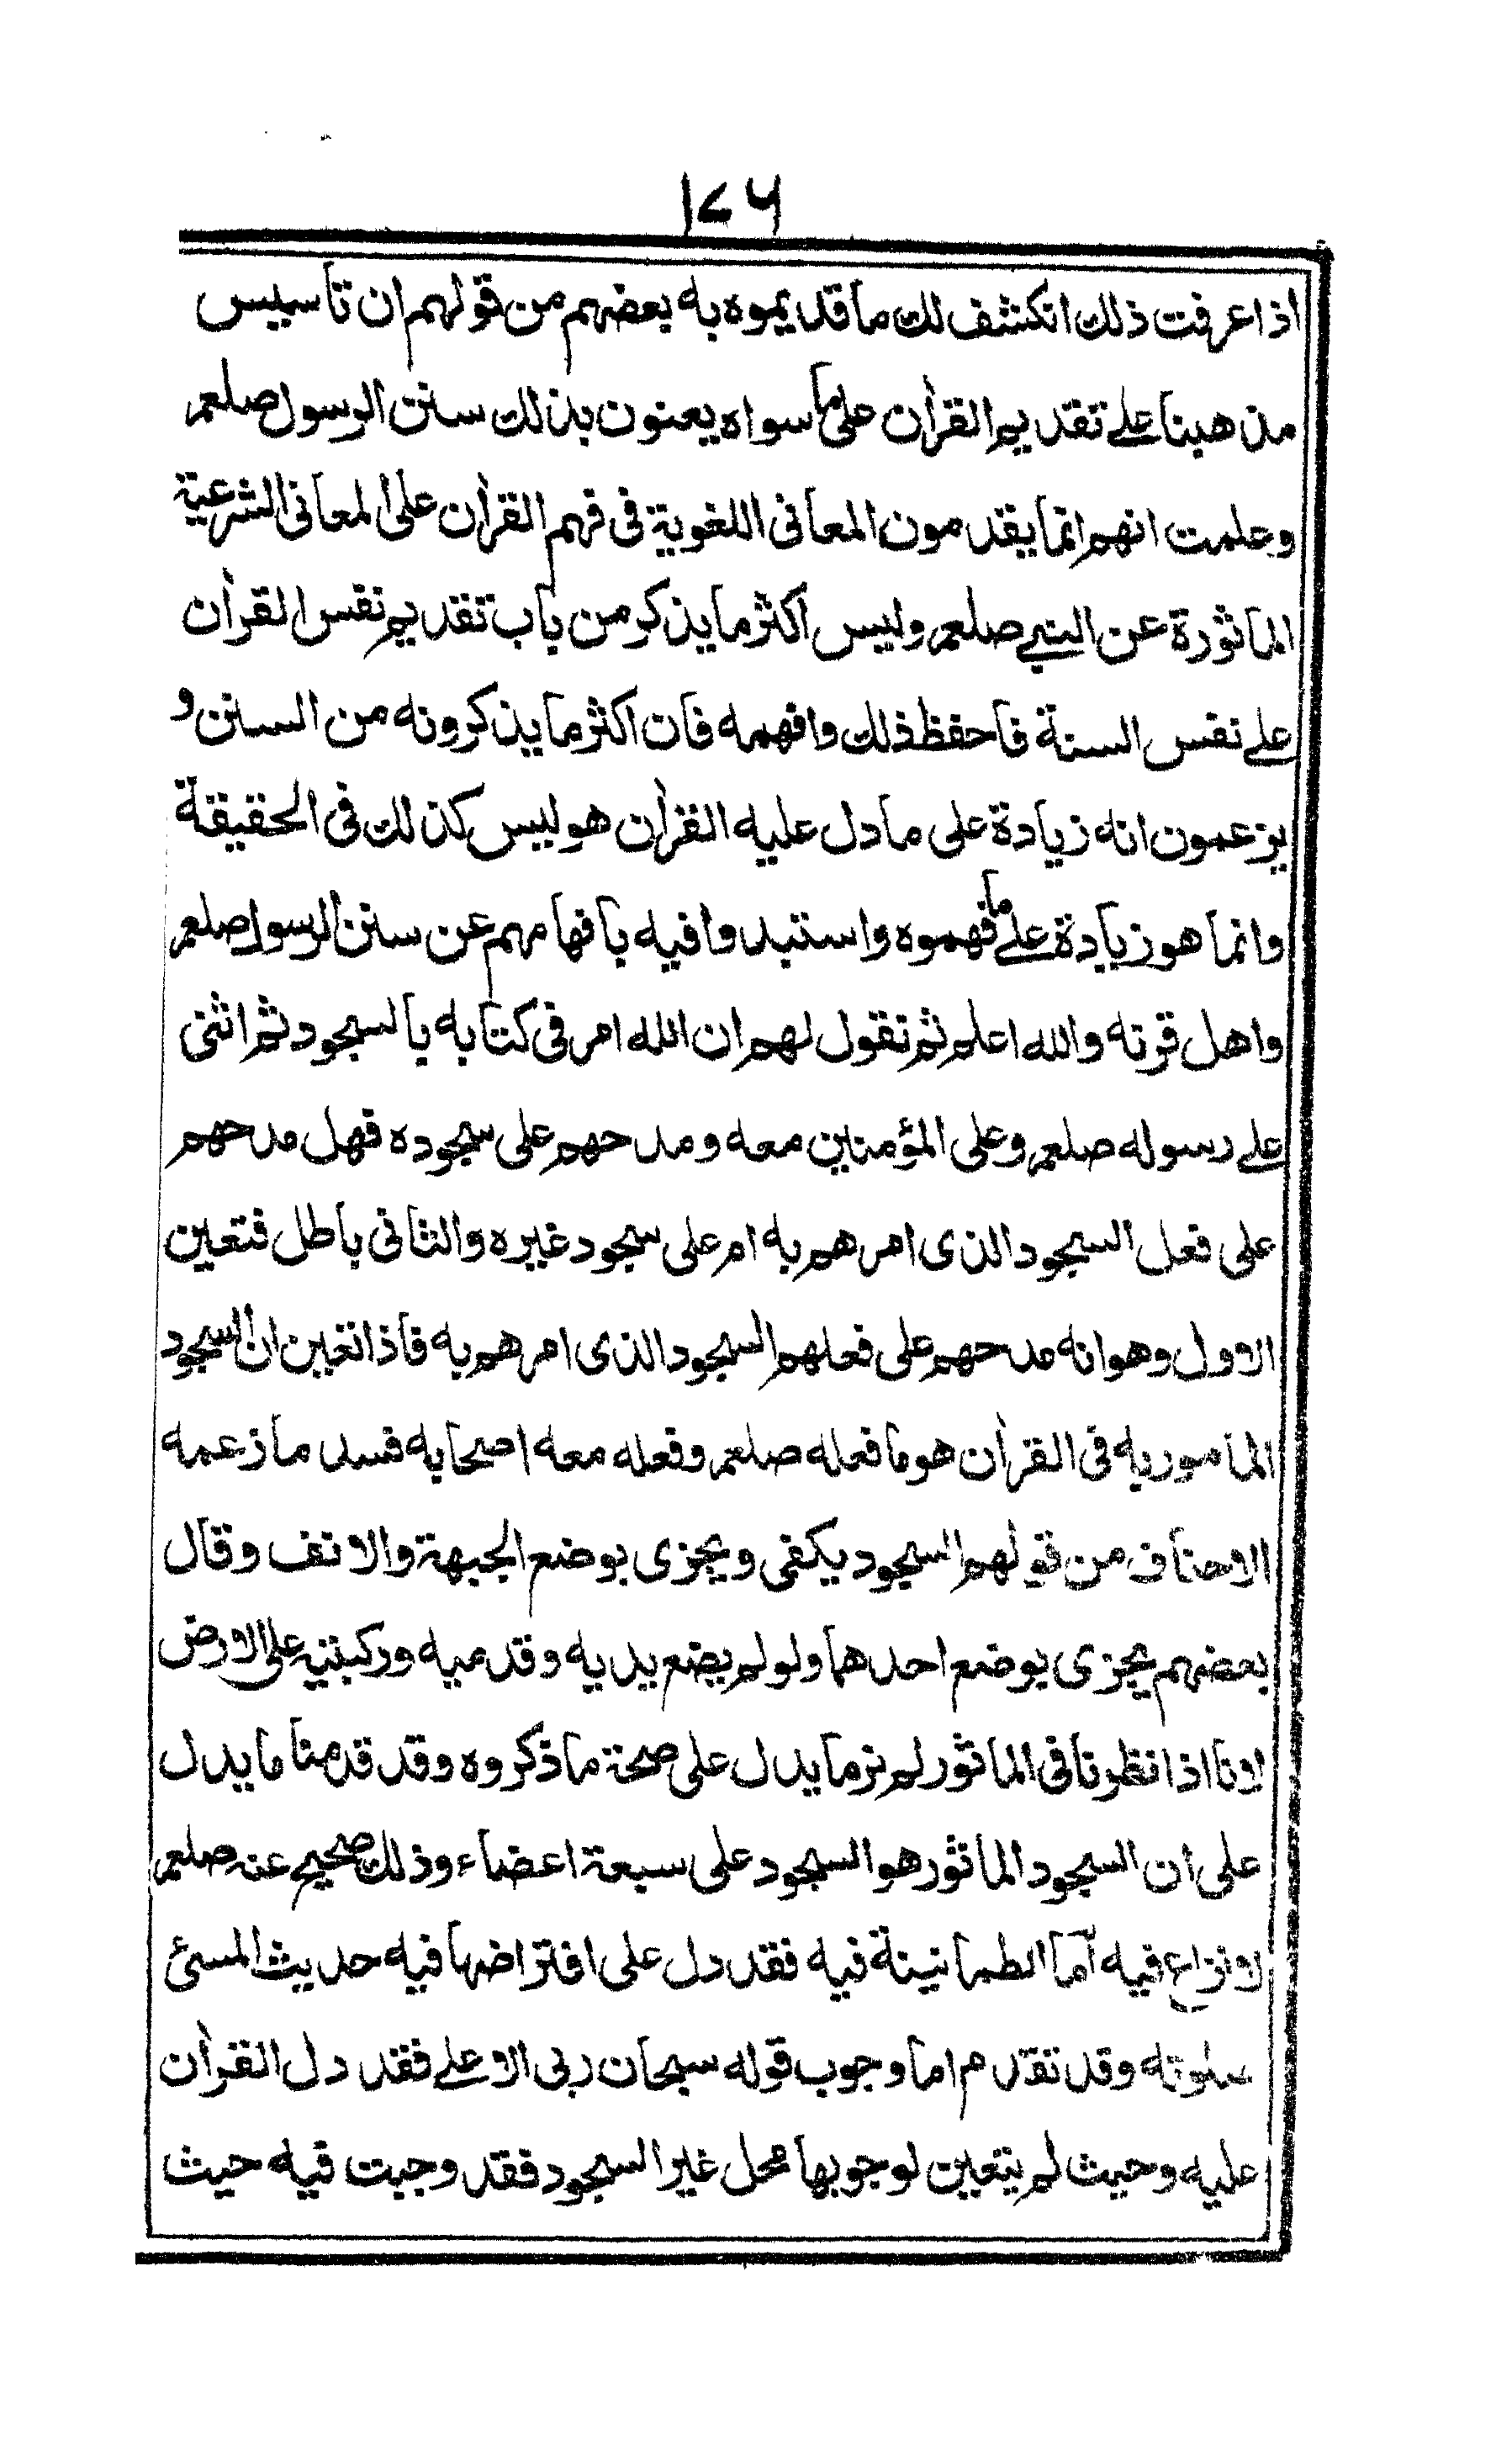 ۱۷۶
اذا عرفت ذلك انكشف لك ما قد يموه به بعضهم من قولهم ان تأسيس
مذهبنا على تقديم القرأن على ما سواه يعنون بذلك سنن الرسول صلعم
وعلمت انهم انما يقدمون المعانى اللغوية فى فهم القرأن على المعانى الشرعية
الماثورة عن النبي صلعم وليس اكثر ما يذكر من باب تقديم نفس القرأن
على نفس السنة فاحفظ ذلك وافهمه فان اكثر ما يذكرونه من السنن و
يزعمون انه زيادة على ما دل عليه القرأن هو ليس كذلك فى الحقيقة
وانما هو زيادة على ما فهموه واستبدوا فيه بافهامهم عن سنن الرسول صلعم
واهل قرنه والله اعلم ثم نقول لهم ان الله امر فى كتابه بالسجود ثم اثنى
على رسوله صلعم وعلى المؤمنين معه ومدحهم على سجوده فهل مدحهم
على فعل السجود الذى امرهم به ام على سجود غيره والثانى باطل فتعين
الاول وهو انه مدحهم على فعلهم السجود الذى امرهم به فاذا تعين ان السجود
المأمور به فى القرأن هو ما فعله صلعم وفعله معه اصحابه فسد ما زعمه
الاحناف من قولهم السجود يكفى ويجزى بوضع الجبهة والانف وقال
بعضهم يجزى بوضع احدهما ولو لم يضع يديه وقدميه وركبتيه على الارض
لانا اذا نظرنا فى الماثور لم نر ما يدل على صحة ما ذكروه وقد قدمنا ما يدل
على ان السجود الماثور هو السجود على سبعة اعضاء وذلك صحيح عنه صلعم
لا نزاع فيه أما الطمانينة فيه فقد دل على افتراضها فيه حديث المسئ
صلوته وقد تقدم اما وجوب قوله سبحان ربى الاعلى فقد دل القرأن
عليه وحيث لم يتعين لوجوبها محل غير السجود فقد وجبت فيه حيث